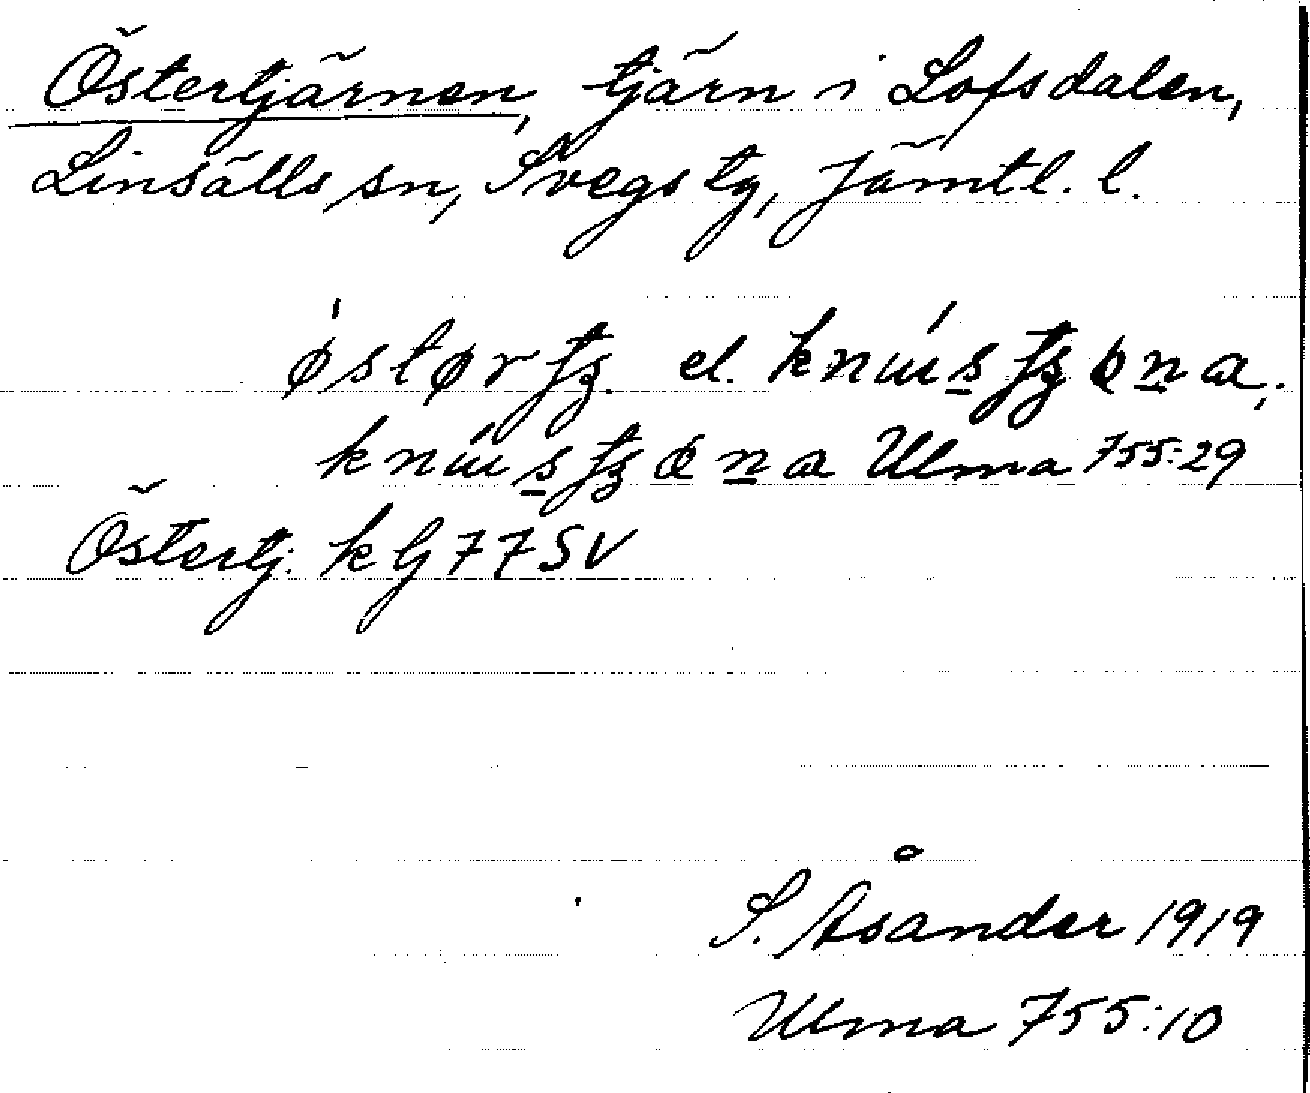 Östertjärnen, tjärn i Lofsdalen,
Linsälls sn, Svegs tg, Jämtl. l.
el.
Ulma 755:29
Östertj. k G77SV
S. Åsander 1919
Ulma 755:10